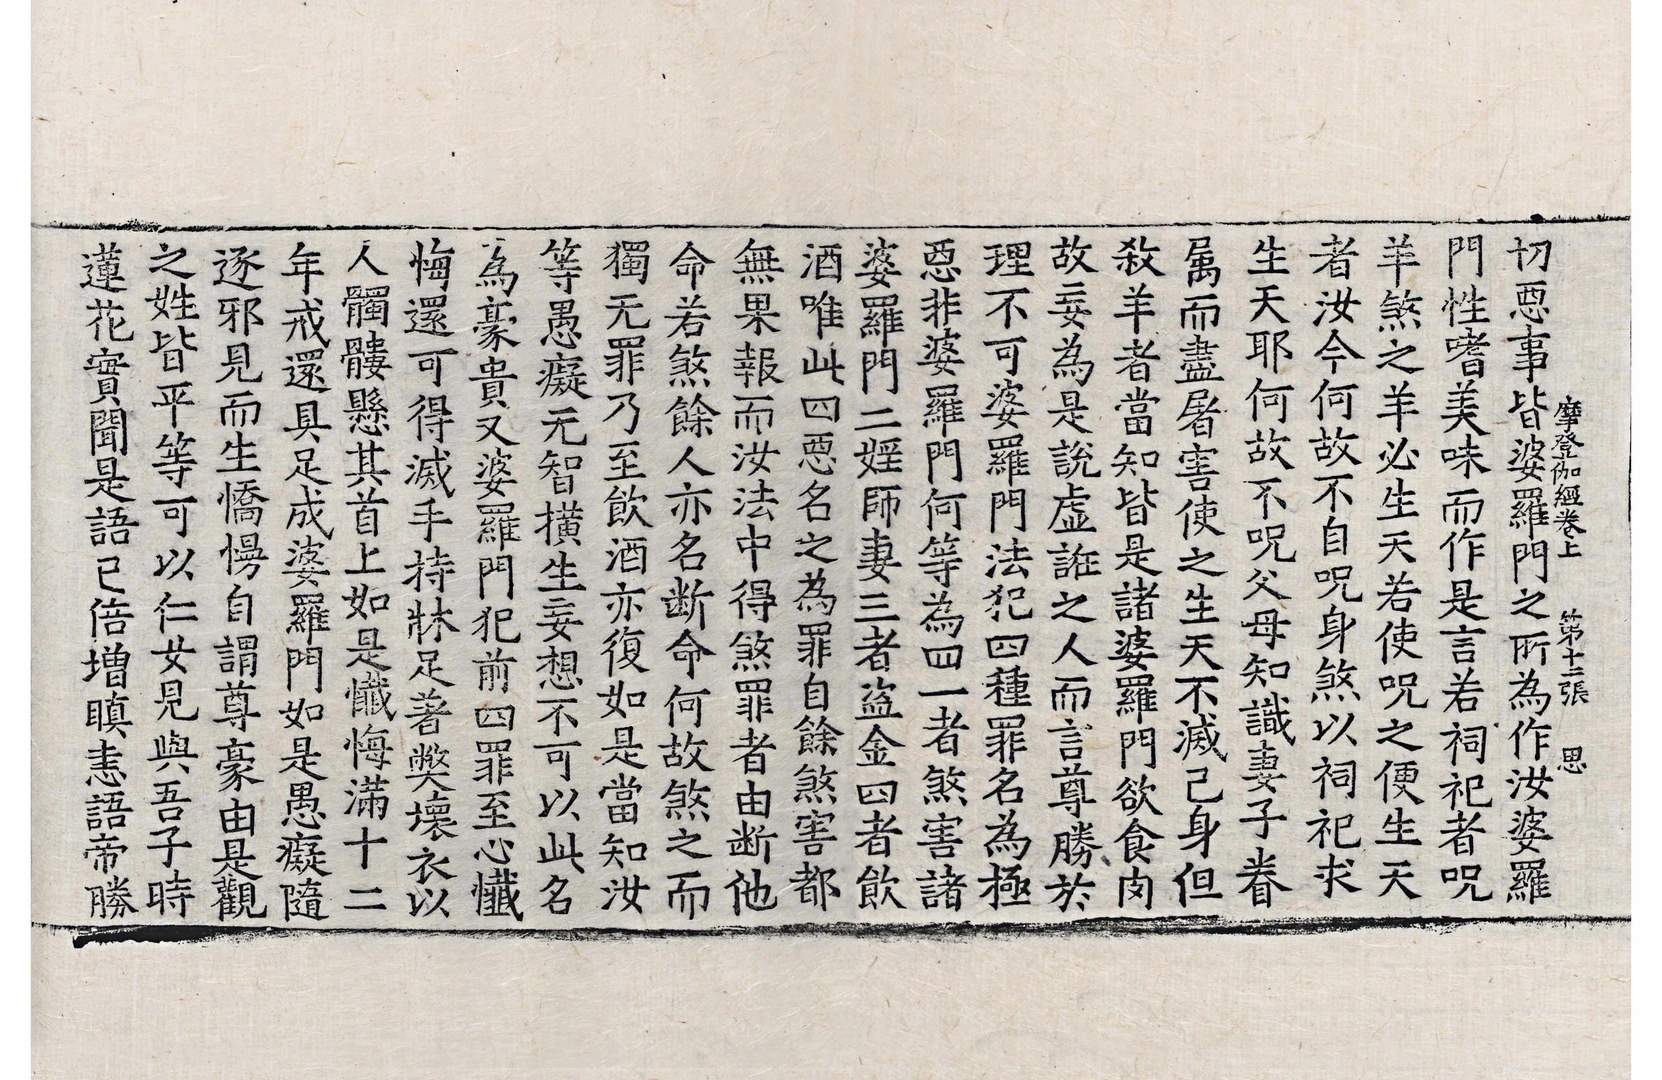 摩登伽經卷上　第十三張　思
切惡事皆婆羅門之所為作汝婆羅
門性嗜美味而作是言若祠祀者呪
羊煞之羊必生天若使呪之便生天
者汝今何故不自呪身煞以祠祀求
生天耶何故不呪父母知識妻子眷
属而盡屠害使之生天不滅己身但
殺羊者當知皆是諸婆羅門欲食肉
故妄為是說虛誑之人而言尊勝於
理不可婆羅門法犯四種罪名為極
惡非婆羅門何等為四一者煞害諸
婆羅門二婬師妻三者盜金四者飲
酒唯此四惡名之為罪自餘煞害都
無果報而汝法中得煞罪者由断他
命若煞餘人亦名断命何故煞之而
獨无罪乃至飲酒亦復如是當知汝
等愚癡无智橫生妄想不可以此名
為豪貴又婆羅門犯前四罪至心懺
悔還可得滅手持牀足著弊壞衣以
人髑髏懸其首上如是懺悔滿十二
年戒還具足成婆羅門如是愚癡隨
逐邪見而生憍慢自謂尊豪由是觀
之姓皆平等可以仁女見與吾子時
蓮花實聞是語已倍增瞋恚語帝勝